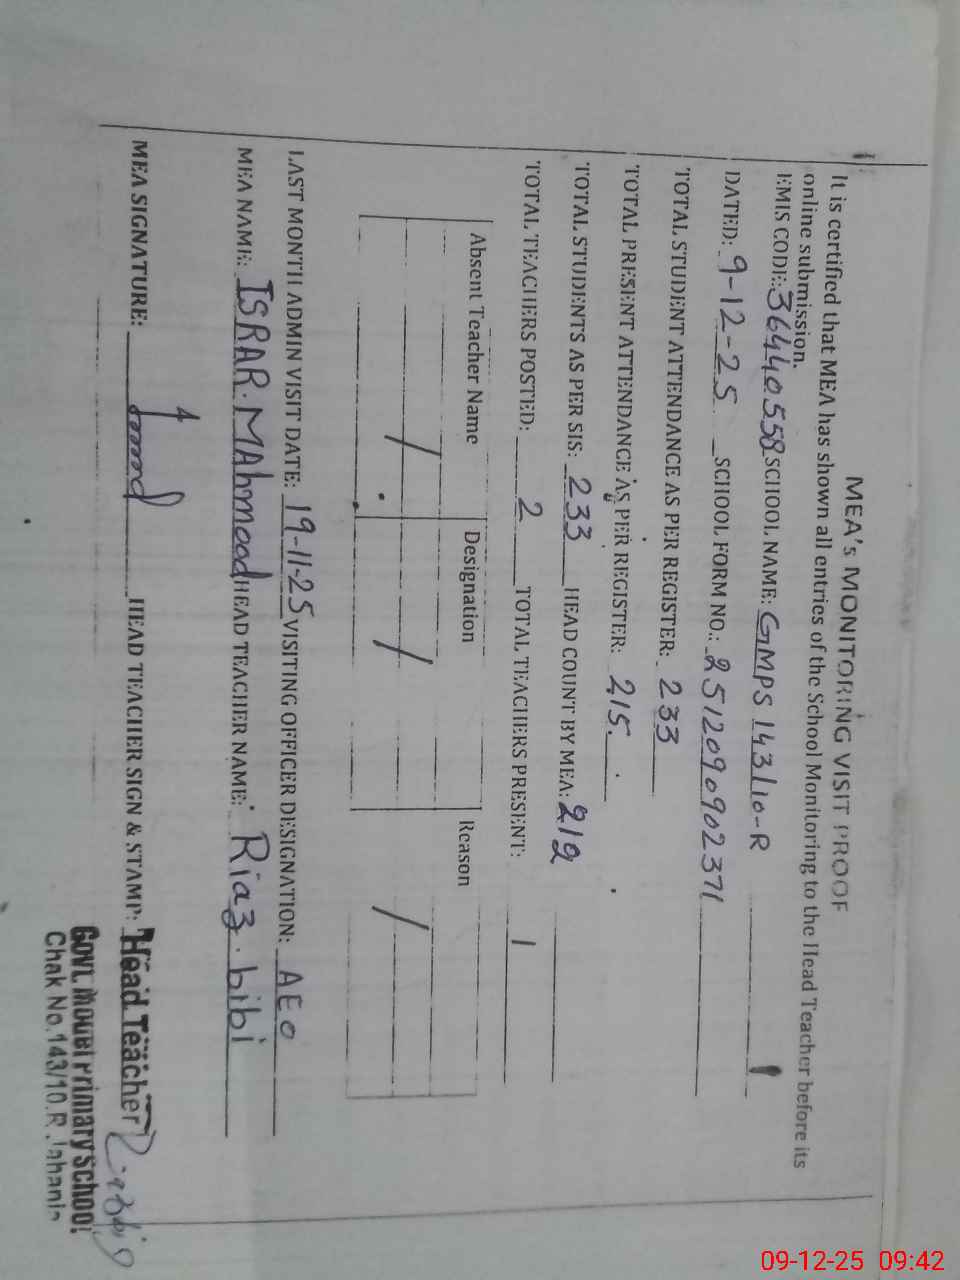 MEA's MONITORING VISIT PROOF
It is certified that MEA has shown all entries of the School Monitoring to the Head Teacher before its
online submission.
EMIS CODE: 36440558 SCHOOL NAME: GMPS 143/10-R
DATED: 9-12-25 SCHOOL FORM NO.: 251209902371
TOTAL STUDENT ATTENDANCE AS PER REGISTER: 233
TOTAL PRESENT ATTENDANCE AS PER REGISTER: 215.
TOTAL STUDENTS AS PER SIS: 233 HEAD COUNT BY MEA: 212
TOTAL TEACHERS POSTED: 2 TOTAL TEACHERS PRESENT: 1
Absent Teacher Name Designation Reason
/ / /
LAST MONTH ADMIN VISIT DATE: 19-11-25 VISITING OFFICER DESIGNATION: AEO
MEA NAME: ISRAR. MAhmood HEAD TEACHER NAME: Riaz. bibi
MEA SIGNATURE: HEAD TEACHER SIGN & STAMP: Head Teacher
Govt. Model Primary School
Chak No.143/10.R Jahania
09-12-25 09:42